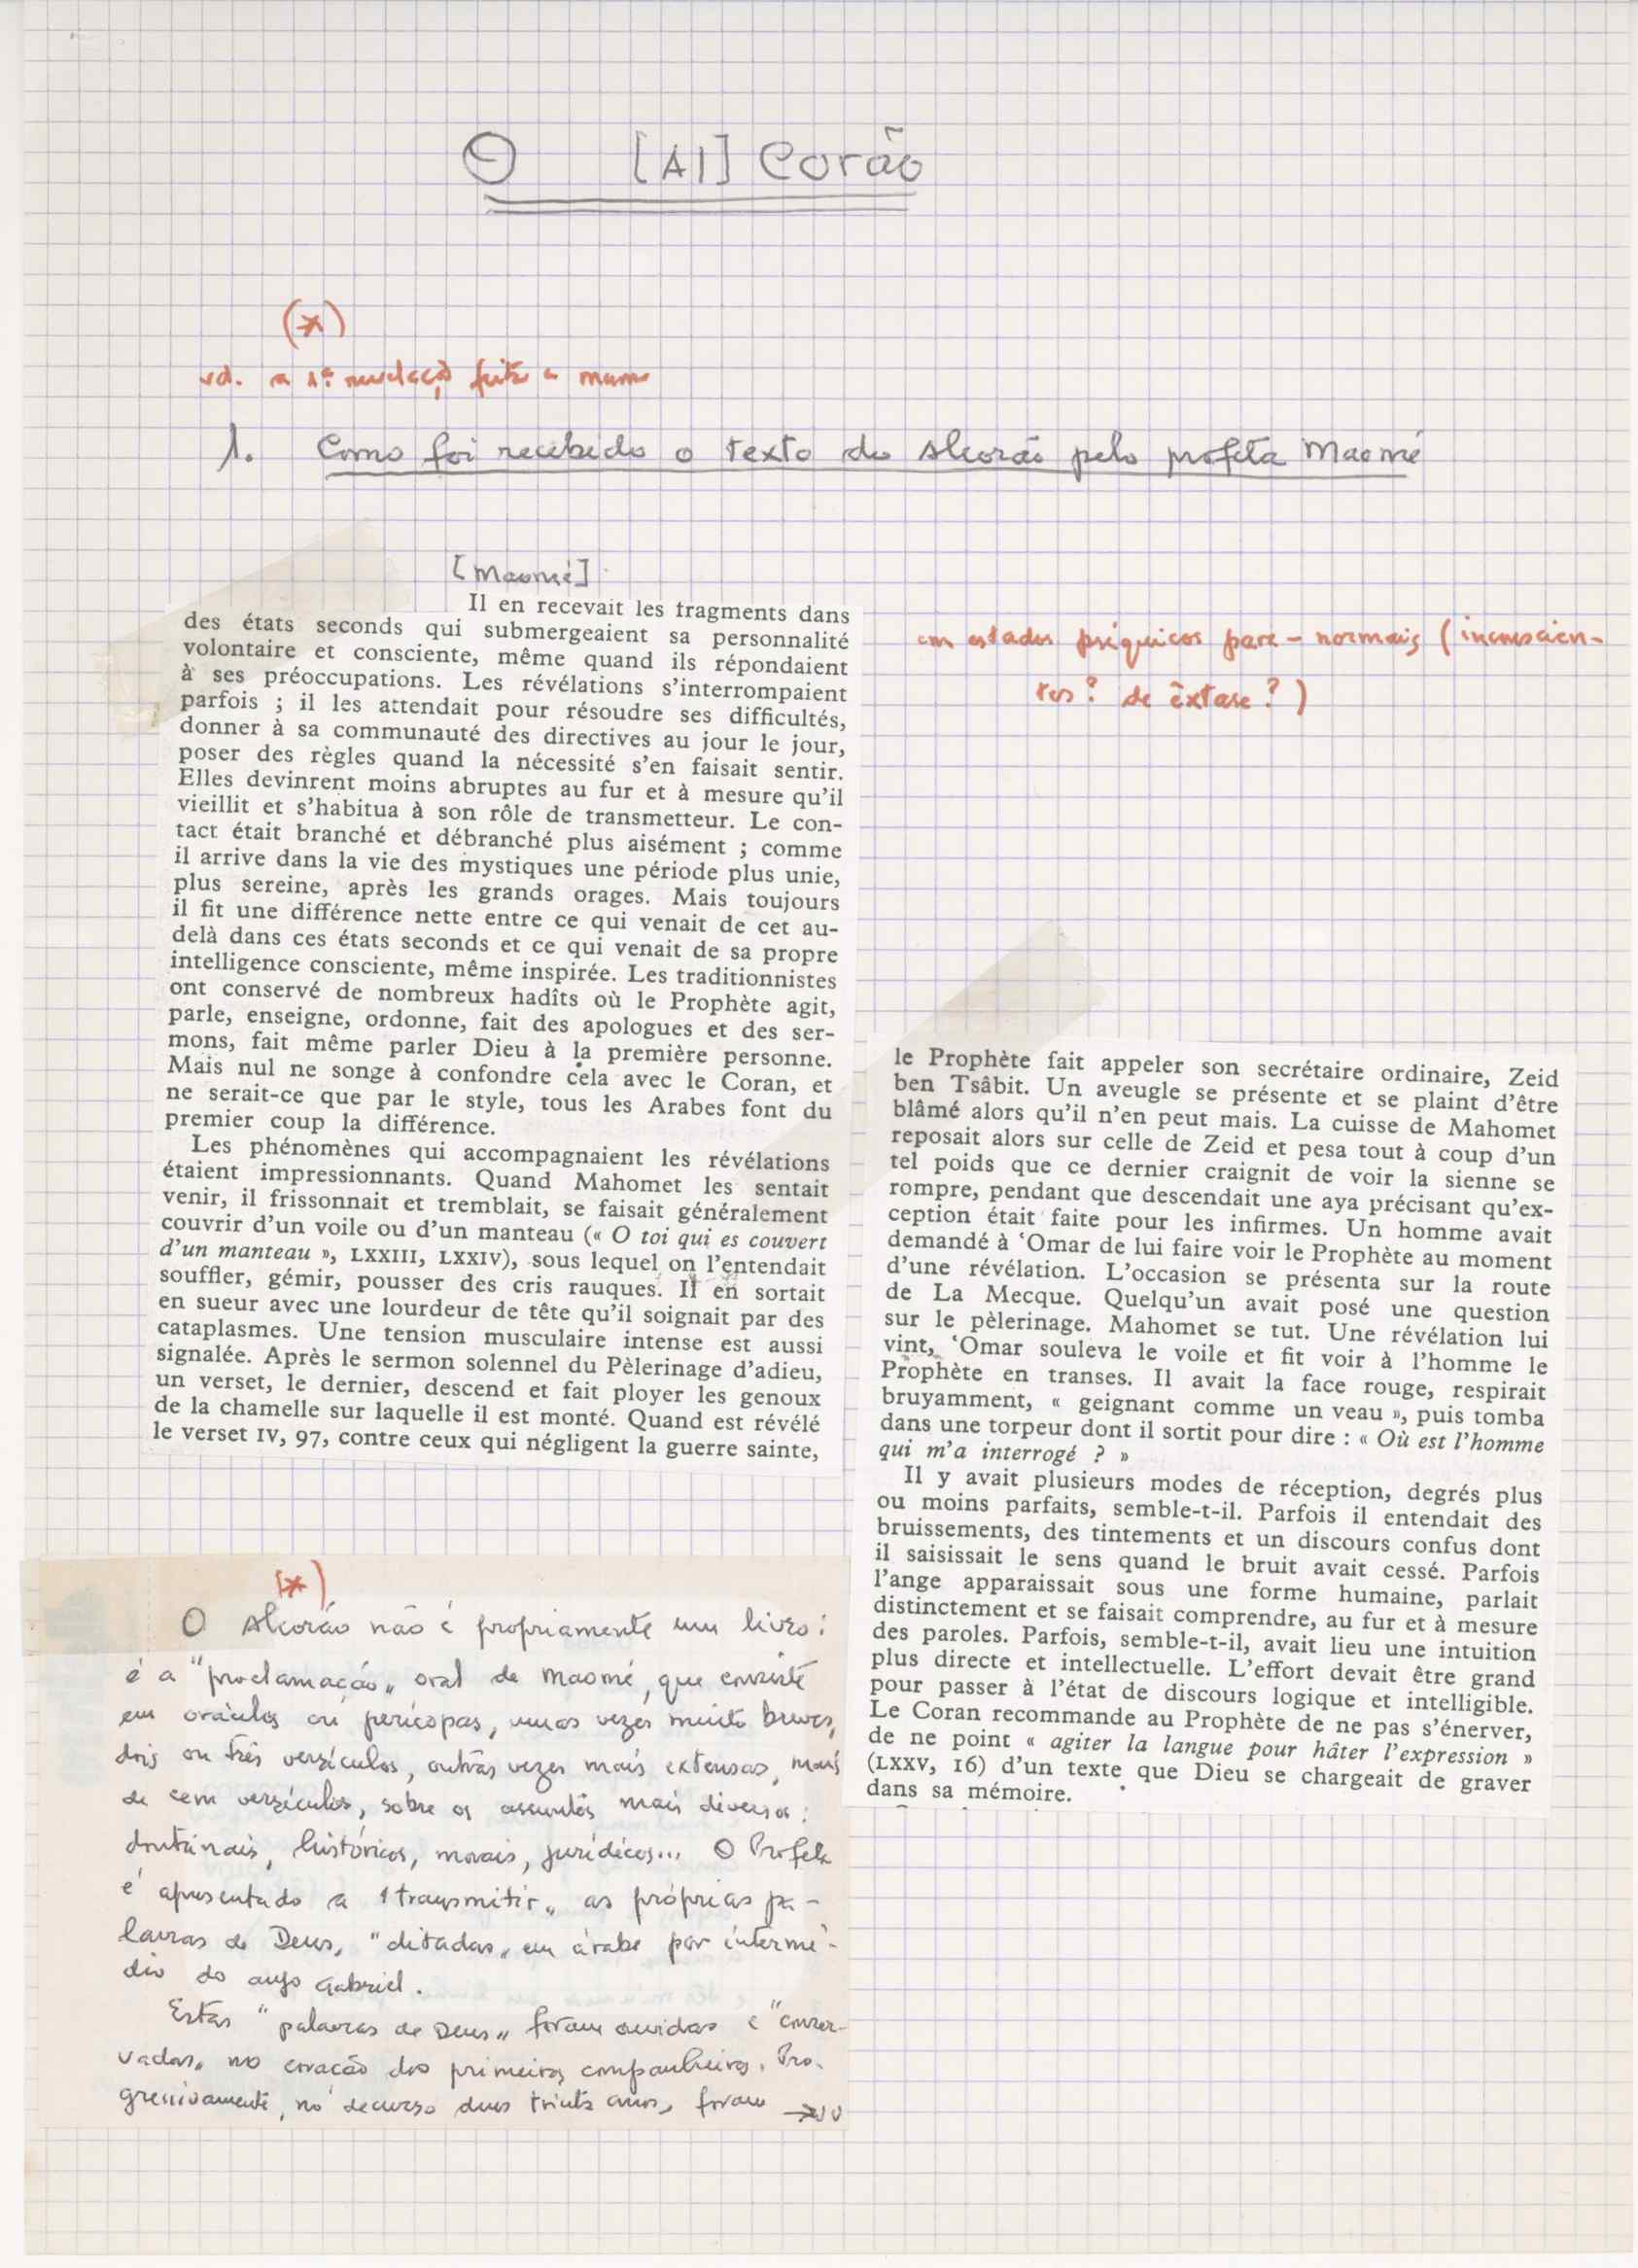 O [Al] Corão
(*)
vd. a 1ª revelação feita a
1. Como foi recebido o texto do Alcorão pelo profeta Maomé
[Maomé]
Il en recevait les fragments dans
des états seconds qui submergeaient sa personnalité
volontaire et consciente, même quand ils répondaient
à ses préoccupations. Les révélations s'interrompaient
parfois ; il les attendait pour résoudre ses difficultés,
donner à sa communauté des directives au jour le jour,
poser des règles quand la nécessité s'en faisait sentir.
Elles devinrent moins abruptes au fur et à mesure qu'il
vieillit et s'habitua à son rôle de transmetteur. Le con-
tact était branché et débranché plus aisément ; comme
il arrive dans la vie des mystiques une période plus unie,
plus sereine, après les grands orages. Mais toujours
il fit une différence nette entre ce qui venait de cet au-
delà dans ces états seconds et ce qui venait de sa propre
intelligence consciente, même inspirée. Les traditionnistes
ont conservé de nombreux hadîts où le Prophète agit,
parle, enseigne, ordonne, fait des apologues et des ser-
mons, fait même parler Dieu à la première personne.
Mais nul ne songe à confondre cela avec le Coran, et
ne serait-ce que par le style, tous les Arabes font du
premier coup la différence.
Les phénomènes qui accompagnaient les révélations
étaient impressionnants. Quand Mahomet les sentait
venir, il frissonnait et tremblait, se faisait généralement
couvrir d'un voile ou d'un manteau (« O toi qui es couvert
d'un manteau », LXXIII, LXXIV), sous lequel on l'entendait
souffler, gémir, pousser des cris rauques. Il en sortait
en sueur avec une lourdeur de tête qu'il soignait par des
cataplasmes. Une tension musculaire intense est aussi
signalée. Après le sermon solennel du Pèlerinage d'adieu,
un verset, le dernier, descend et fait ployer les genoux
de la chamelle sur laquelle il est monté. Quand est révélé
le verset IV, 97, contre ceux qui négligent la guerre sainte,
em estados psíquicos para-normais (inconscien-
tes? de êxtase?)
le Prophète fait appeler son secrétaire ordinaire, Zeid
ben Tsâbit. Un aveugle se présente et se plaint d'être
blâmé alors qu'il n'en peut mais. La cuisse de Mahomet
reposait alors sur celle de Zeid et pesa tout à coup d'un
tel poids que ce dernier craignit de voir la sienne se
rompre, pendant que descendait une aya précisant qu'ex-
ception était faite pour les infirmes. Un homme avait
demandé à ʻOmar de lui faire voir le Prophète au moment
d'une révélation. L'occasion se présenta sur la route
de La Mecque. Quelqu'un avait posé une question
sur le pèlerinage. Mahomet se tut. Une révélation lui
vint, ʻOmar souleva le voile et fit voir à l'homme le
Prophète en transes. Il avait la face rouge, respirait
bruyamment, « geignant comme un veau », puis tomba
dans une torpeur dont il sortit pour dire : « Où est l'homme
qui m'a interrogé ? »
Il y avait plusieurs modes de réception, degrés plus
ou moins parfaits, semble-t-il. Parfois il entendait des
bruissements, des tintements et un discours confus dont
il saisissait le sens quand le bruit avait cessé. Parfois
l'ange apparaissait sous une forme humaine, parlait
distinctement et se faisait comprendre, au fur et à mesure
des paroles. Parfois, semble-t-il, avait lieu une intuition
plus directe et intellectuelle. L'effort devait être grand
pour passer à l'état de discours logique et intelligible.
Le Coran recommande au Prophète de ne pas s'énerver,
de ne point « agiter la langue pour hâter l'expression »
(LXXV, 16) d'un texte que Dieu se chargeait de graver
dans sa mémoire.
(*)
O Alcorão não é propriamente um livro:
é a "proclamação" oral de Maomé, que consiste
em oráculos ou perícopas, umas vezes muito breves,
dois ou três versículos, outras vezes mais extensas, mais
de cem versículos, sobre os assuntos mais diversos:
doutrinais, históricos, morais, jurídicos... O Profeta
é apresentado a "transmitir" as próprias pa-
lavras de Deus, "ditadas" em árabe por intermé-
dio do anjo Gabriel.
Estas "palavras de Deus" foram ouvidas e "conser-
vadas" no coração dos primeiros companheiros. Pro-
gressivamente, no decurso duns trinta anos, foram →